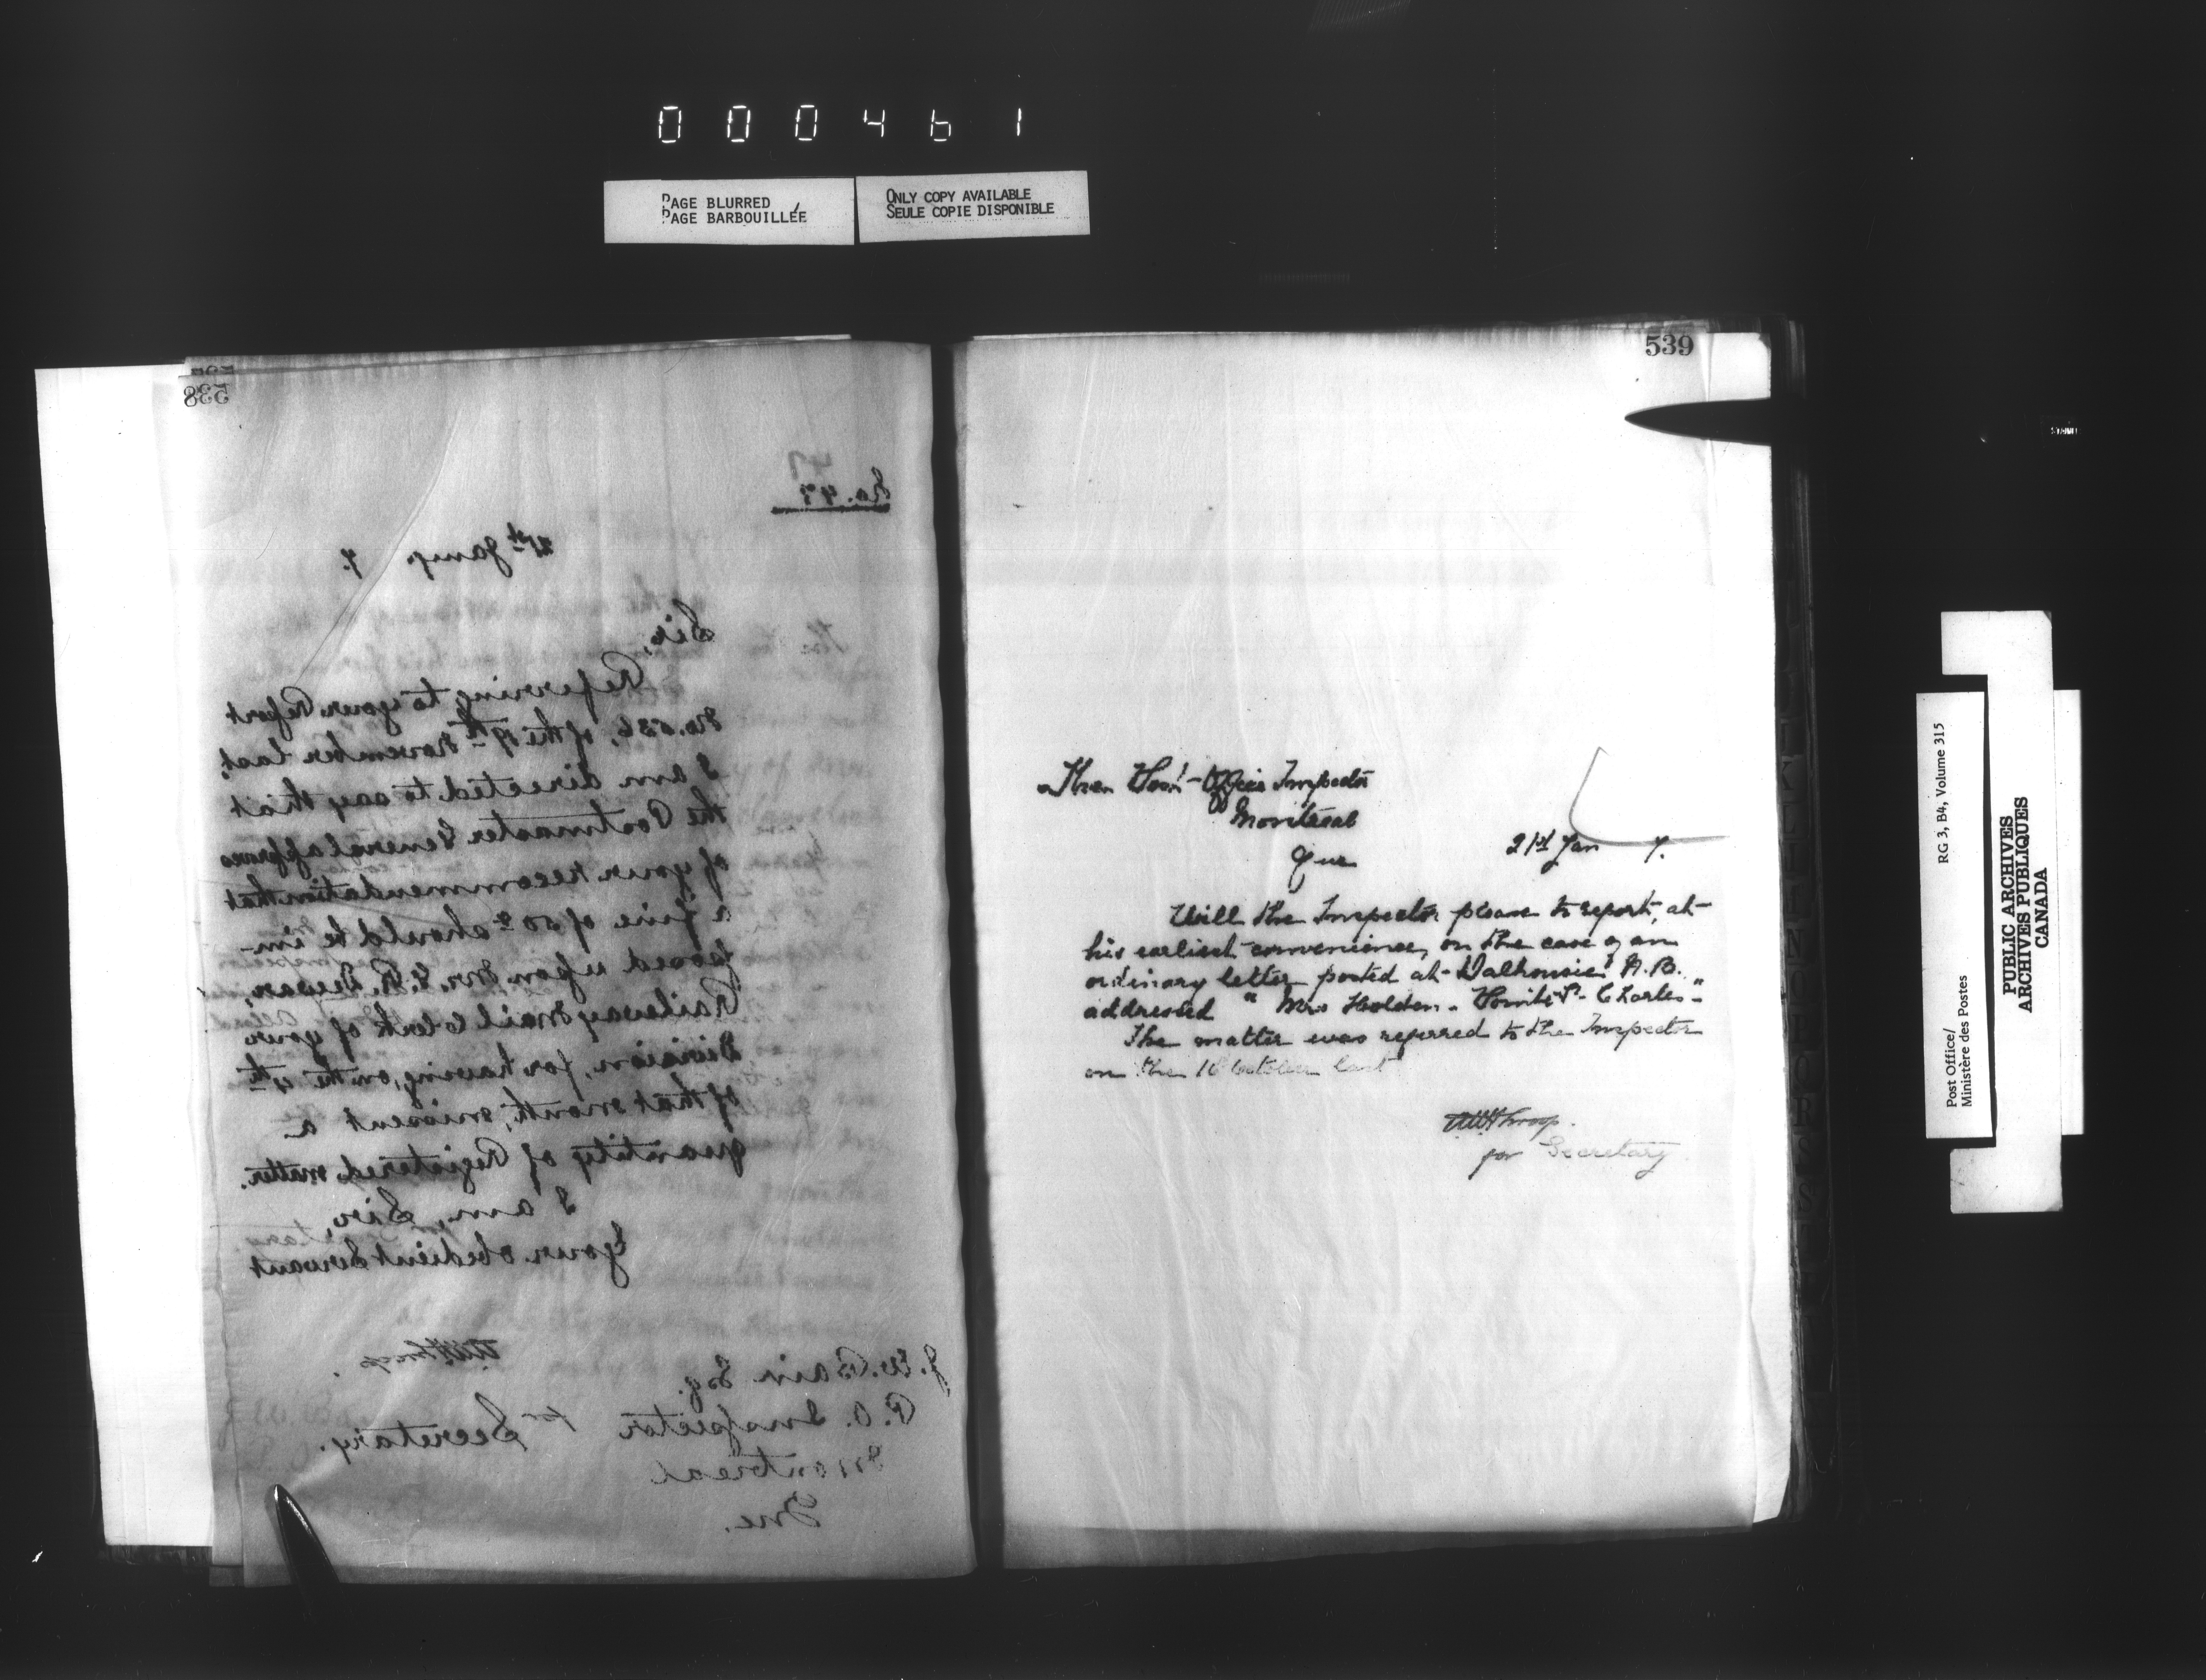 000461
PAGE BLURRED
PAGE BARBOUILLÉE
ONLY COPY AVAILABLE
SEULE COPIE DISPONIBLE
538
47
No. 47
21st Jany. 7.
Sir,
Referring to your Report
No. 536, of the 19th November last,
I am directed to say that
the Postmaster General approves
of your recommendation that
a fine of 50¢ should be im-
posed upon Mr. E. R. Dewar,
Railway Mail Clerk of your
Division, for having, on the 4th
of that month, missent a
quantity of Registered matter.
I am, Sir,
Your obedient Servant
for Secretary.
J. W. Bain Esq.
P.O. Inspector
Montreal
Que.
539
The Post-Office Inspector
Montreal
Que
21st Jan 7.
Will the Inspector please to report, at
his earliest convenience, on the case of an
ordinary letter posted at Dalhousie N.B.
addressed "Mrs Holden - Pointe St- Charles"-
The matter was referred to the Inspector
on the October last
for Secretary
Post Office/
Ministère des Postes
RG 3, B4, Volume 315
PUBLIC ARCHIVES
ARCHIVES PUBLIQUES
CANADA